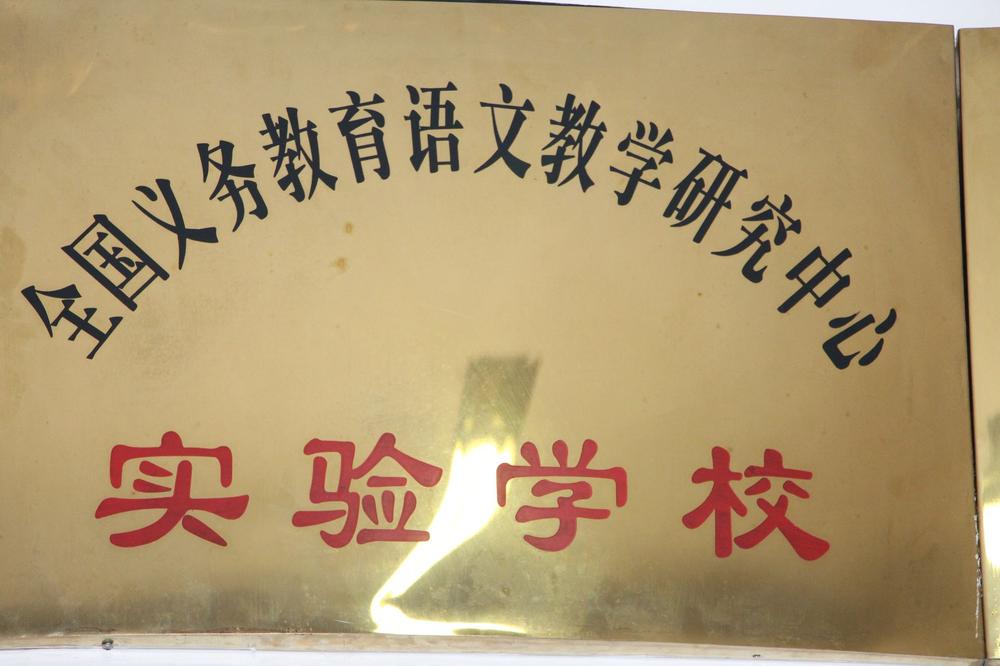 全国义务教育语文教学研究中心
实验学校